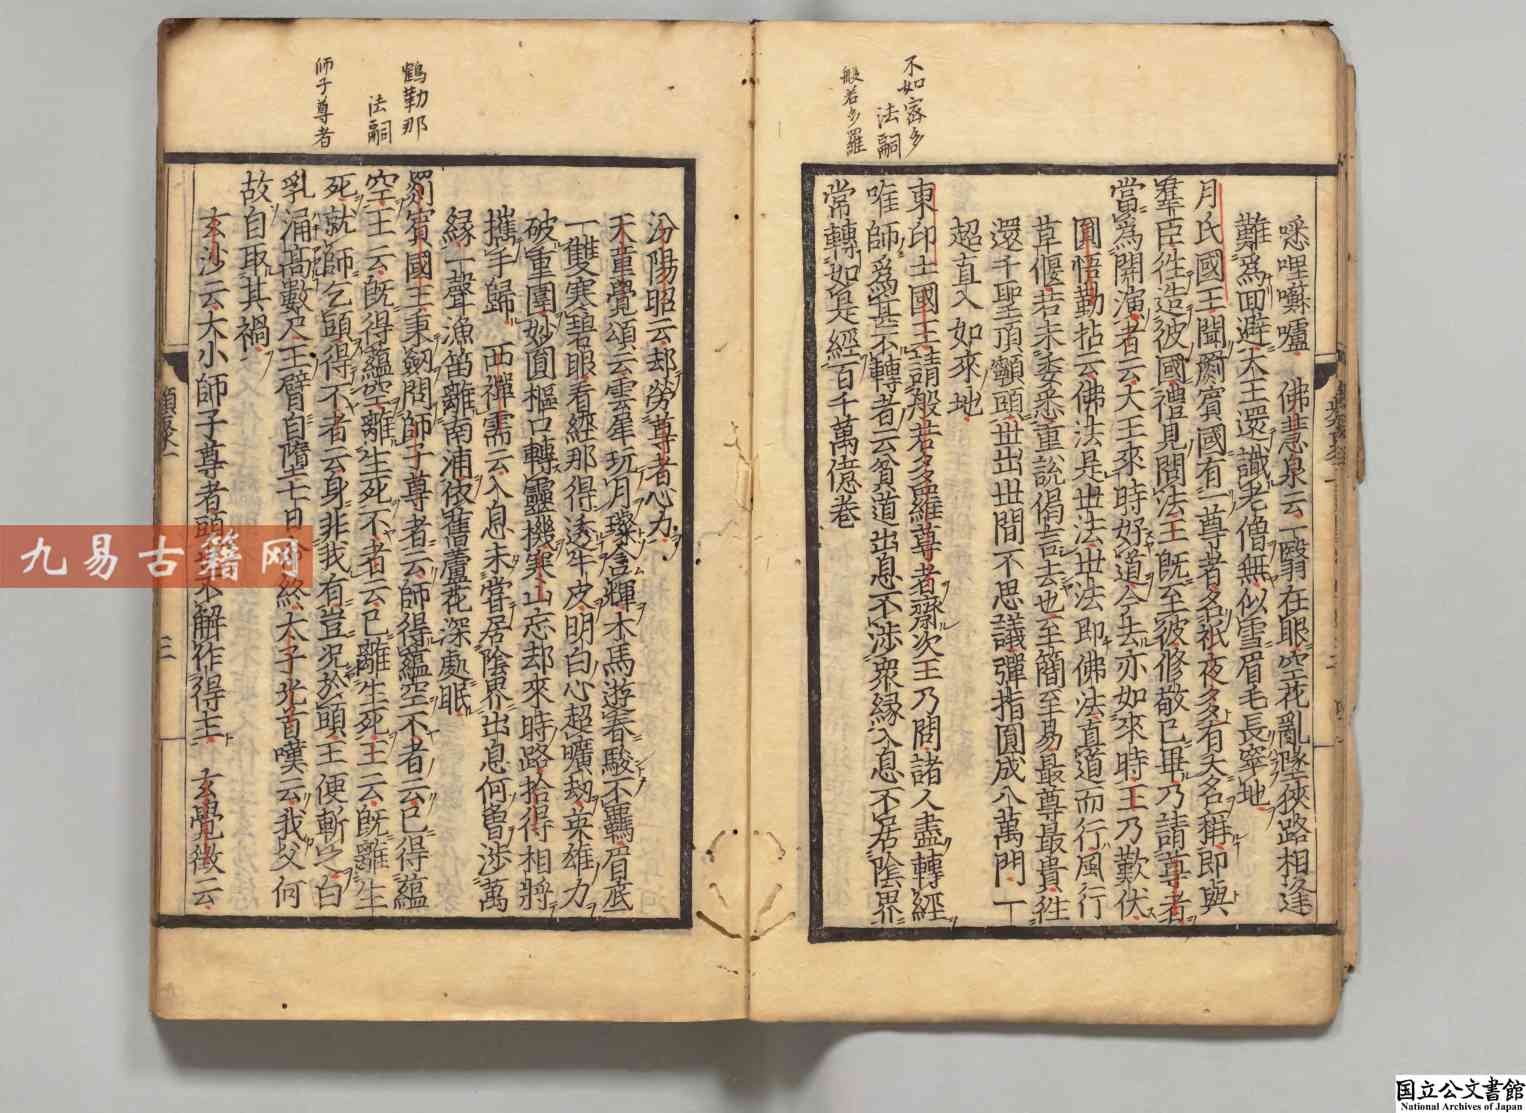 不如密多
法嗣
般若多羅
悉哩嚩嚧 佛慧泉云一翳在眼空花亂墜狹路相逢
難爲回避大王還識老僧無似雪眉毛長窣地
月氏國王聞罽賓國有一尊者名祇夜多有大名稱即與
羣臣徃造彼國禮見問法王既至彼修敬已畢乃請尊者
當爲開演者云大王來時好道今去亦如來時王乃歎伏
圓悟勤拈云佛法是世法世法即佛法直道而行風行
草偃若未委悉重說偈言去也至簡至易最尊最貴徃
還千聖頂𩕳頭世出世間不思議彈指圓成八萬門一
超直入如來地
東印土國王請般若多羅尊者齋次王乃問諸人盡轉經
唯師爲甚不轉者云貧道出息不涉衆緣入息不居陰界
常轉如是經百千萬億卷
鶴勒那
法嗣
師子尊者
汾陽昭云却勞尊者心力
天童覺頌云雲犀玩月璨含輝木馬遊春駿不羈眉底
一雙寒碧眼看經那得透牛皮明白心超曠劫英雄力
破重圍妙圓樞口轉靈機寒山忘却來時路拾得相將
攜手歸 西禪需云入息未嘗居陰界出息何曾涉萬
緣一聲漁笛離南浦依舊蘆花深處眠
罽賓國王秉劒問師子尊者云師得蘊空不者云已得蘊
空王云既得蘊空離生死不者云已離生死王云既離生
死就師乞頭得不者云身非我有豈況於頭王便斬之白
乳涌高數尺王臂自墮七日命終太子光首嘆云我父何
故自取其禍
玄沙云大小師子尊者頭不解作得主 玄覺徵云
三
九易古籍网
国立公文書館
National Archives of Japan